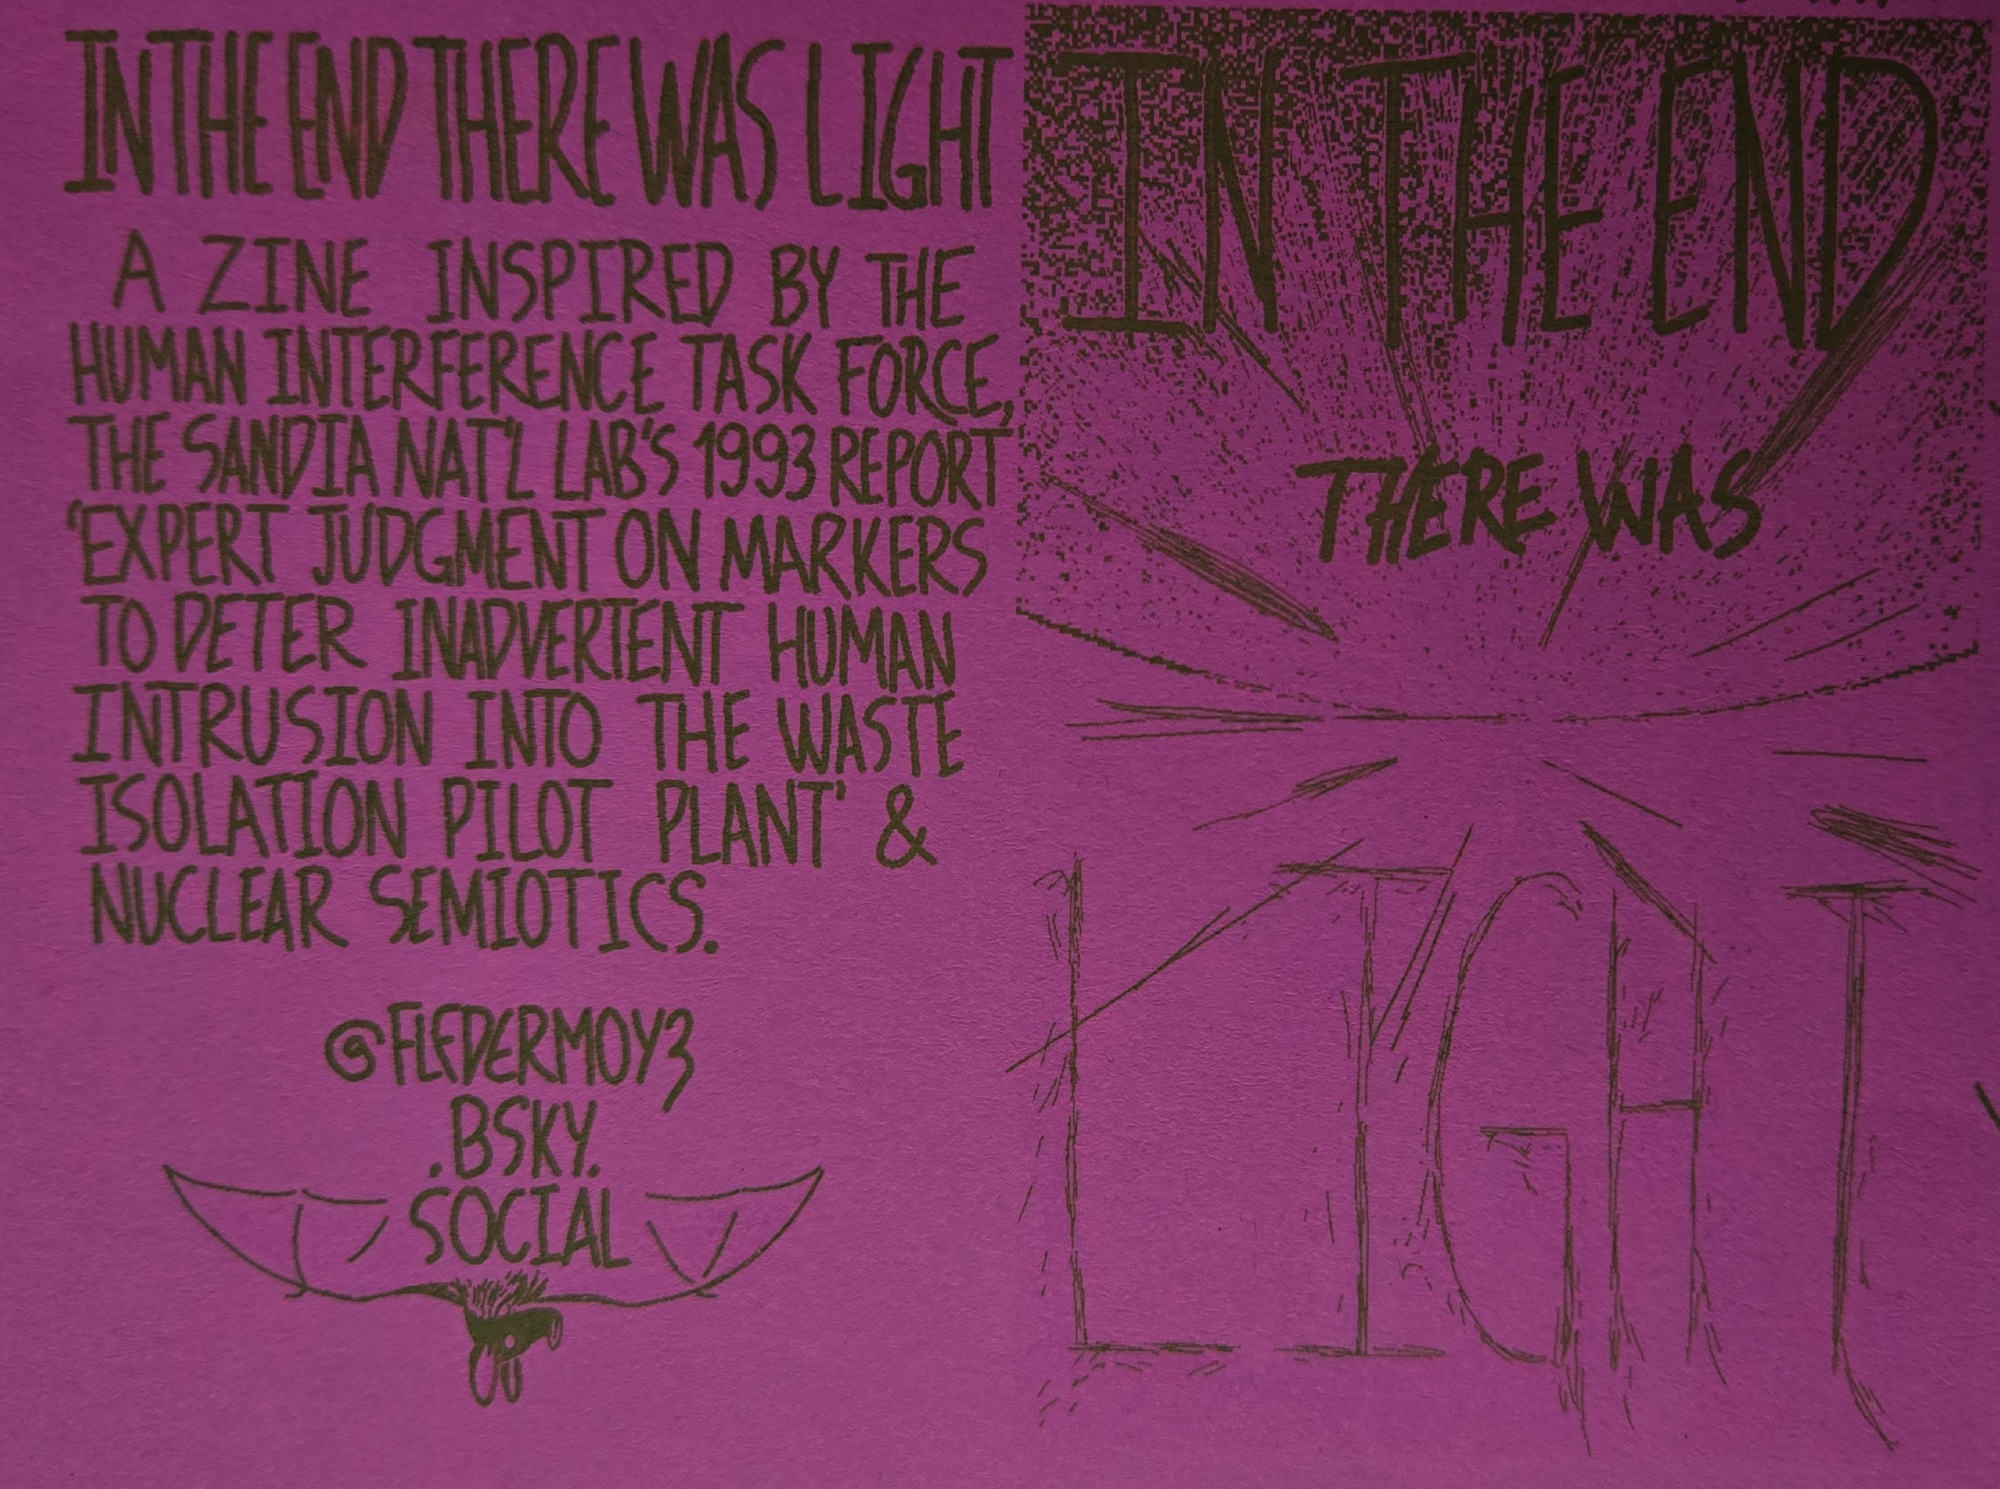 IN THE END THERE WAS LIGHT
A ZINE INSPIRED BY THE
HUMAN INTERFERENCE TASK FORCE,
THE SANDIA NAT'L LAB'S 1993 REPORT
'EXPERT JUDGMENT ON MARKERS
TO DETER INADVERTENT HUMAN
INTRUSION INTO THE WASTE
ISOLATION PILOT PLANT' &
NUCLEAR SEMIOTICS.
@FLEDERMOY3
.BSKY.
SOCIAL
IN THE END
THERE WAS
LIGHT